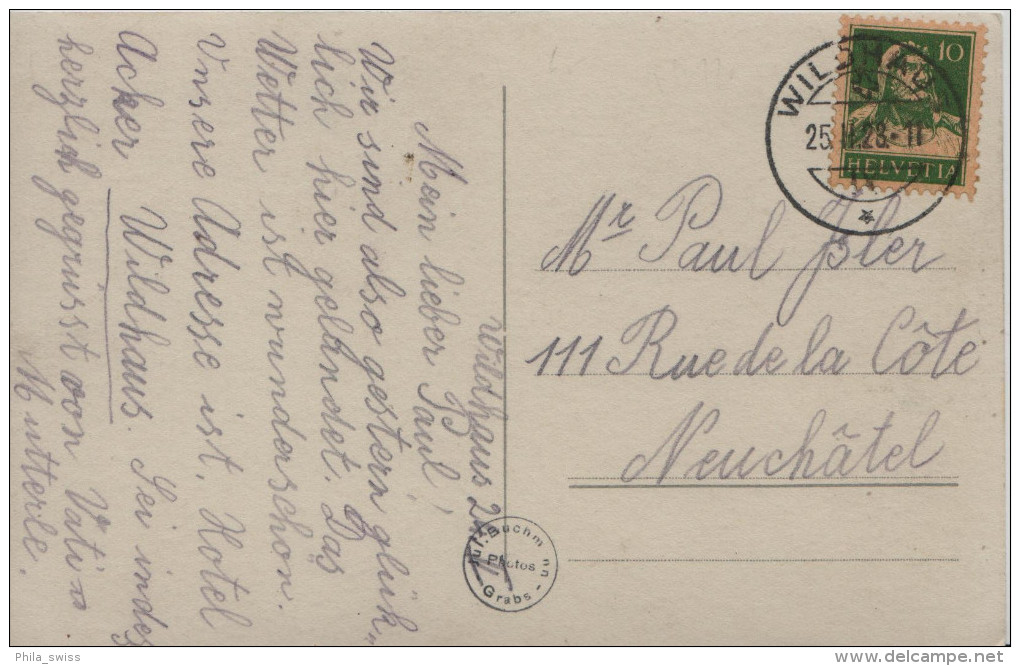 Wildhaus
Mein lieber Paul!
Wir sind also gestern glük„
lich hier gelandet. Das
Wetter ist wunderschön.
Unsere Adresse ist. Hotel
Acker Wildhaus. Sei indes
herzlich gegrüsst von Vati u
Mutterle.
WILDHAUS
HELVETIA
10
Mr Paul Jsler
111 Rue de la Côte
Neuchâtel
Buchm nn
Photos
Grabs -
Phila_swiss
www.delcampe.net